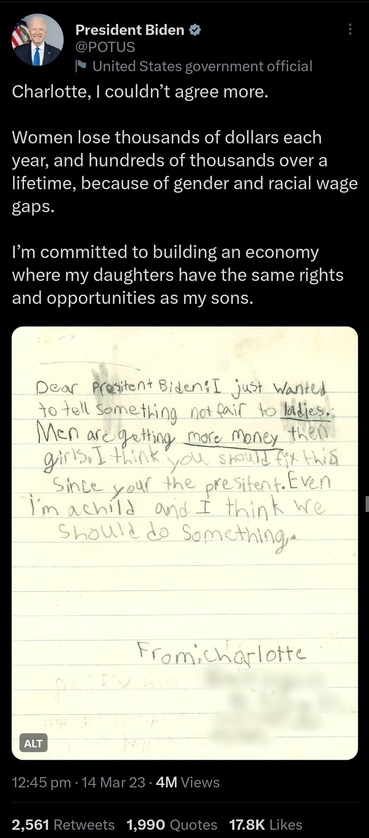 President Biden
@POTUS
United States government official
Charlotte, I couldn’t agree more.
Women lose thousands of dollars each
year, and hundreds of thousands over a
lifetime, because of gender and racial wage
gaps.
I’m committed to building an economy
where my daughters have the same rights
and opportunities as my sons.
Dear Presitent Biden: I just wanted
to tell something not fair to ladies.
Men are getting more money then
girls. I think you should fix this
Since your the presitent. Even
I'm a child and I think we
should do something.
From: charlotte
ALT
12:45 pm · 14 Mar 23 · 4M Views
2,561 Retweets 1,990 Quotes 17.8K Likes